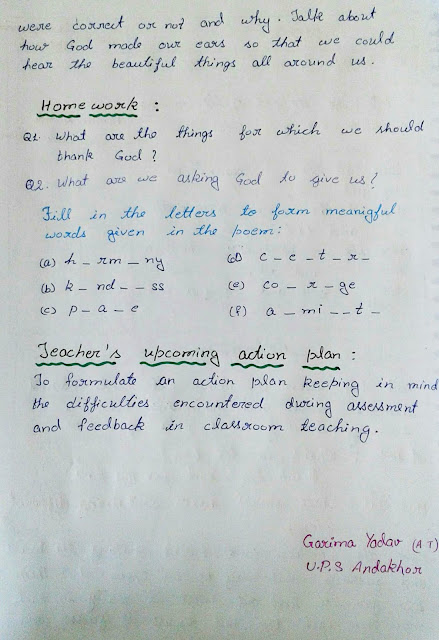 were correct or not and why. Talk about
how God made our ears so that we could
hear the beautiful things all around us.
Home work :
Q1. What are the things for which we should
thank God ?
Q2. What are we asking God to give us?
Fill in the letters to form meanigful
words given in the poem:
(a) h _ rm _ ny (d) c _ e _ t _ r _
(b) k _ nd _ _ ss (e) co _ _ r _ ge
(c) p _ a _ e (f) a _ mi _ _ t _
Teacher's upcoming action plan :
To formulate an action plan keeping in mind
the difficulties encountered during assessment
and feedback in classroom teaching.
Garima Yadav (A T)
U.P.S Andakhor